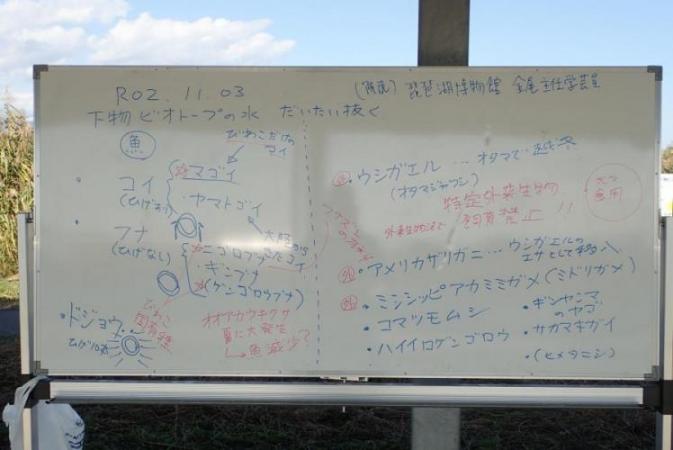 R02.11.03
下物ビオトープの水 だいたい抜く
魚
びわこだけの
コイ
・コイ
(ひげあり)
マゴイ
・ヤマトゴイ
大陸から
きたコイ
・フナ
(ひげなし)
ニゴロブナ
・ギンブナ
(ゲンゴロウブナ)
びわこ
固有種
・ドジョウ
ひげ10本
オオアカウキクサ
夏に大発生
→魚減少?
琵琶湖博物館 金尾主任学芸員
外・ウシガエル…オタマで越冬
(オタマジャクシ)
特定外来生物
外来生物法で飼育禁止!!
外・アメリカザリガニ…ウシガエルの
エサとして
外・ミシシッピアカミミガメ(ミドリガメ)
・コマツモムシ
・ハイイロゲンゴロウ
・ギンヤンマ
のヤゴ
・サカマキガイ
・(ヒメタニシ)